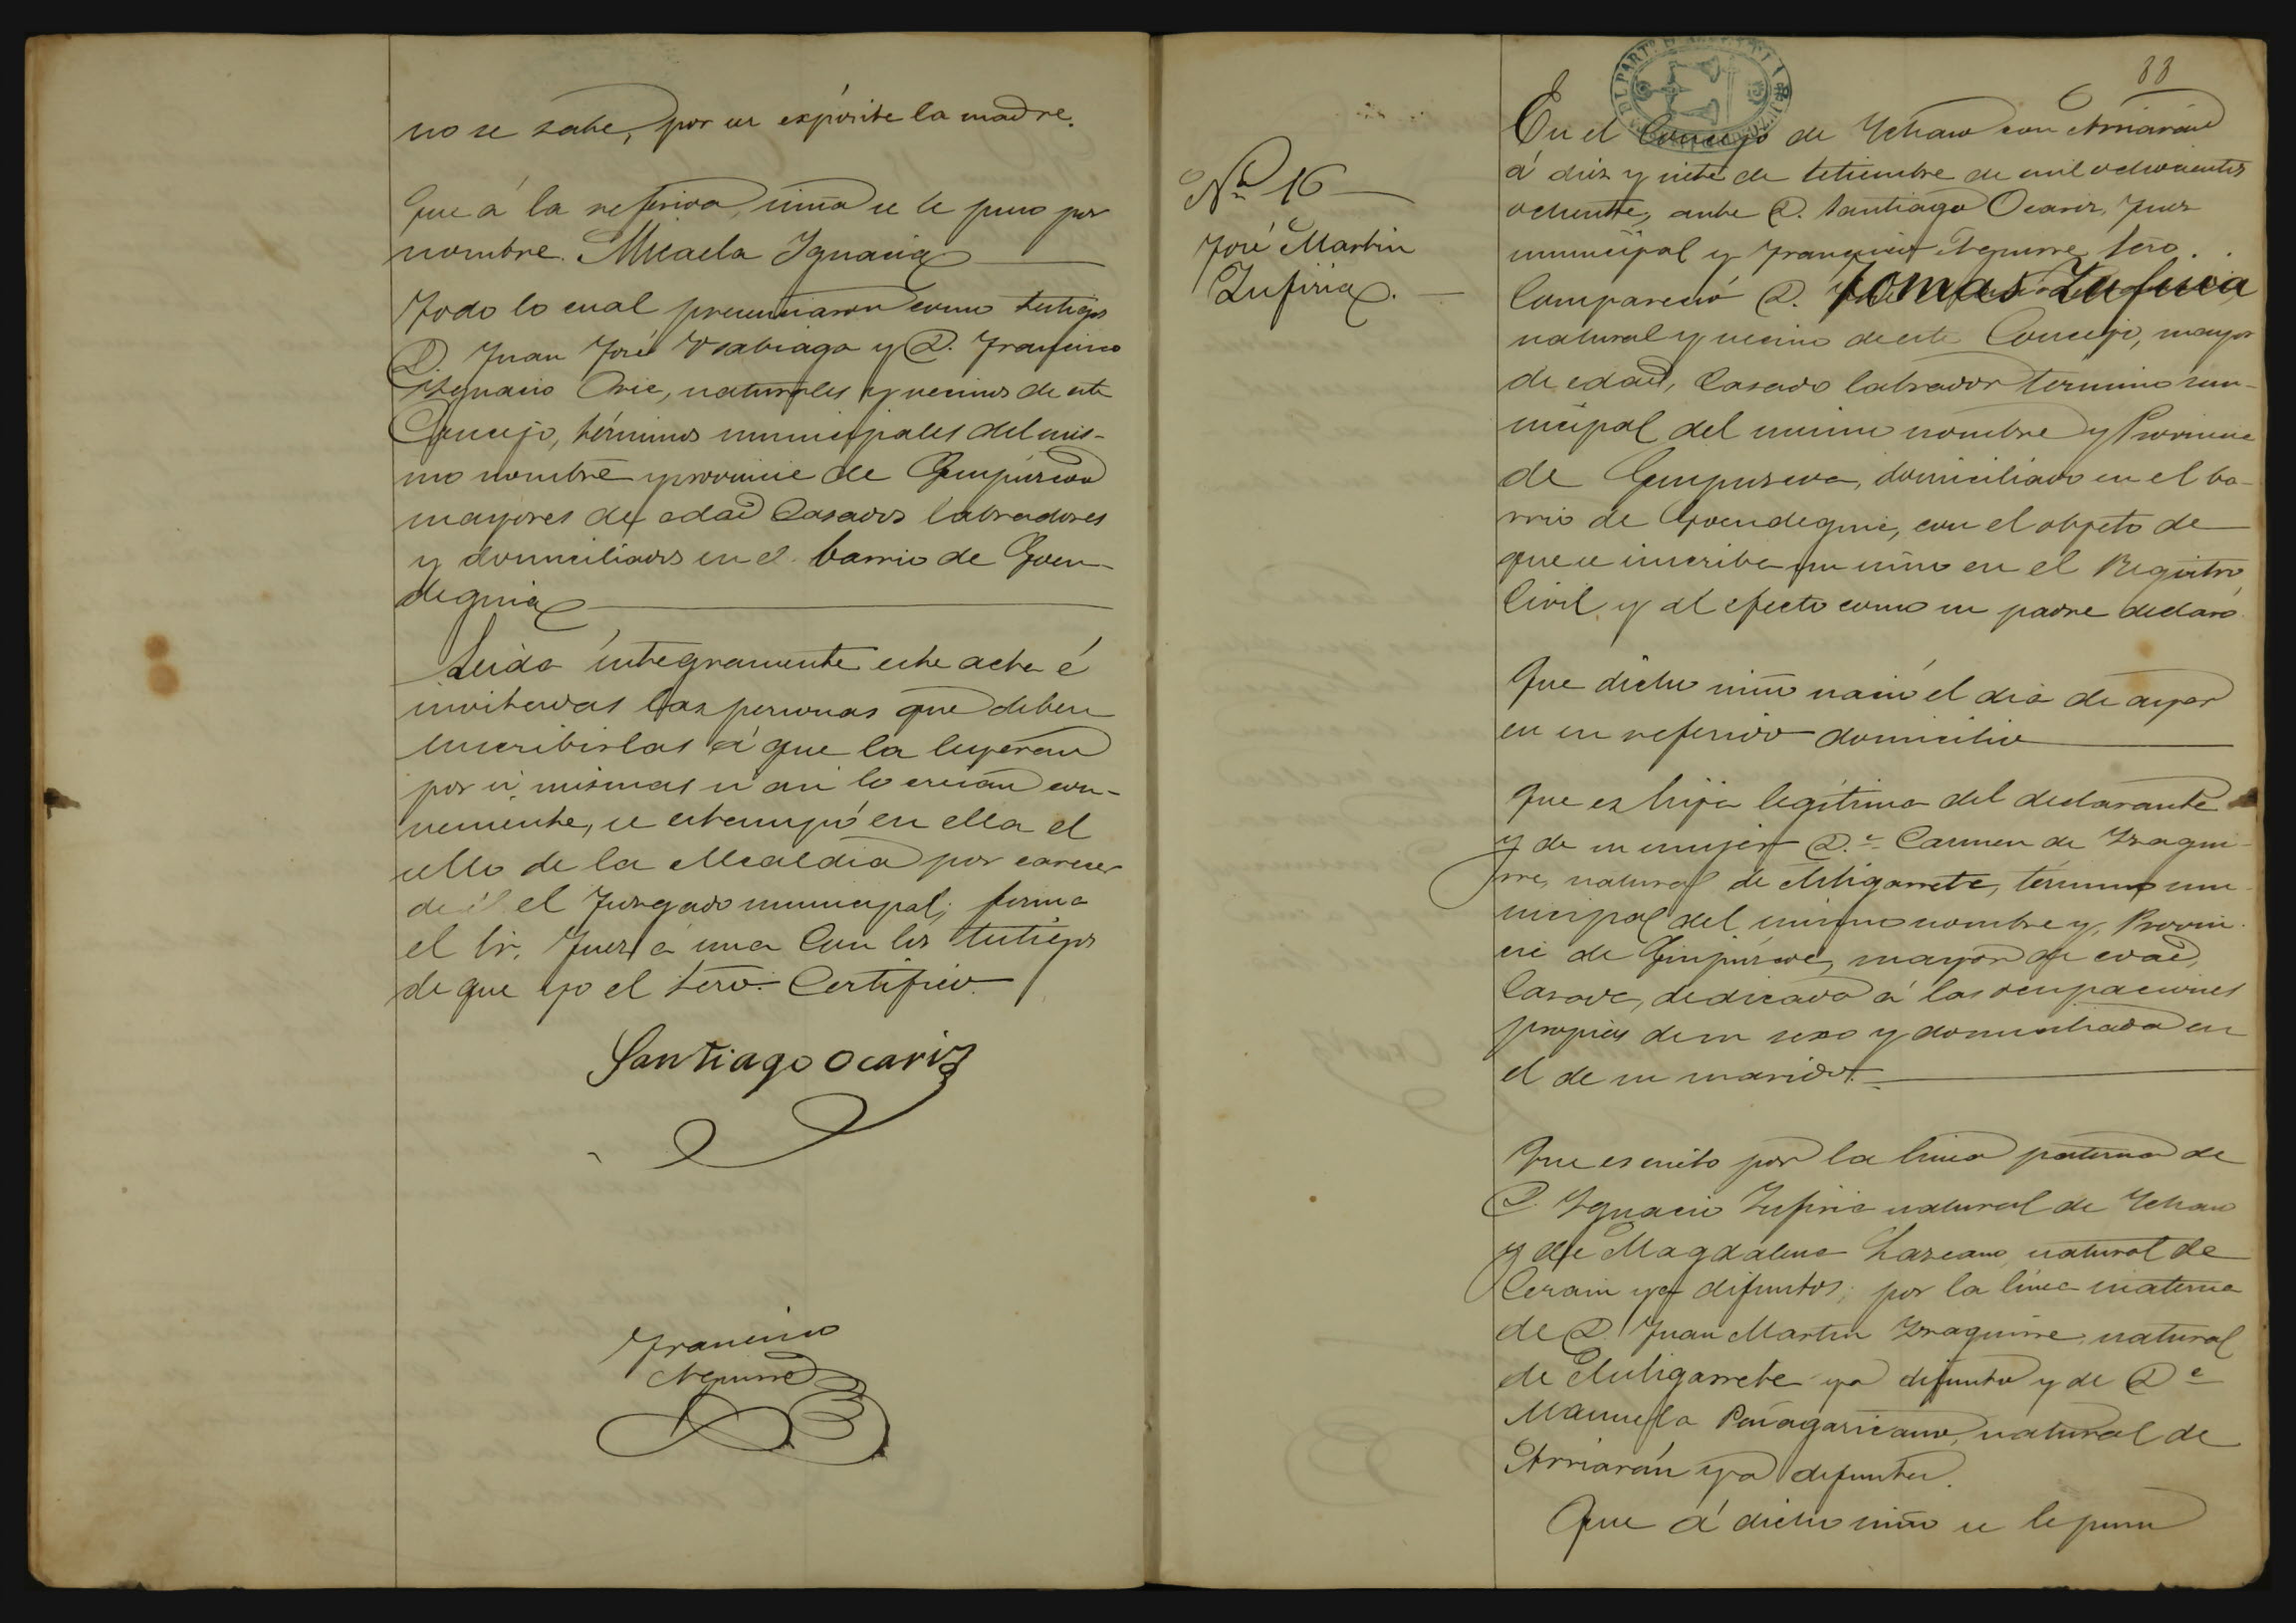 no se sabe, por ser expósita la madre.
Que á la referida niña se le puso por
nombre Micaela Ignacia
Todo lo cual presenciaron como testigos
D. Juan José Usabiaga y D. Francisco
Ignacio Oria, naturales y vecinos de este
Concejo, términos municipales del mis-
mo nombre y provincia de Guipúzcoa
mayores de edad Casados labradores
y domiciliados en el barrio de Goen-
deguia
Leida íntegramente este acta é
invitadas las personas que deben
suscribirlas á que la leyeran
por si mismas si asi lo creian con-
veniente, se estampó en ella el
sello de la Alcaldia por carecer
de él el Juzgado municipal; firma
el Sr. Juez á una Con los testigos
de que yo el Srio. Certifico.
Santiago Ocariz
Francisco
Aguirre
88
Nº 16
José Martin
Zufiria.
En el Concejo de Ychaso con Arriarán
á diez y siete de Setiembre de mil ochocientos
ochenta, ante D. Santiago Ocariz, Juez
municipal y Francisco Aguirre, Srio.
Compareció D. Tomas Zufiria
natural y vecino de este Concejo, mayor
de edad, Casado labrador termino mu-
nicipal del mismo nombre y Provincia
de Guipuzcoa, domiciliado en el ba-
rrio de Goendeguia, con el objeto de
que se inscriba un niño en el Registro
Civil y al efecto como su padre declaró
Que dicho niño nació el dia de ayer
en su referido domicilio
Que es hijo legítimo del declarante
y de su mujer D.ª Carmen de Yzagui-
rre, natural de Astigarreta, término mu-
nicipal del mismo nombre y Provin-
cia de Guipúzcoa, mayor de edad,
Casada, dedicada á las ocupaciones
propias de su sexo y domiciliada en
el de su marido.
Que es nieto por la linea paterna de
D. Ygnacio Zufiria natural de Ychaso
y de Magdalena Lazcano, natural de
Cerain ya difuntos; por la línea materna
de D. Juan Martin Yzaguirre, natural
de Astigarreta ya difunto y de Dª
Manuela Pañagaricano, natural de
Arriarán ya difunta.
Que á dicho niño se le puso